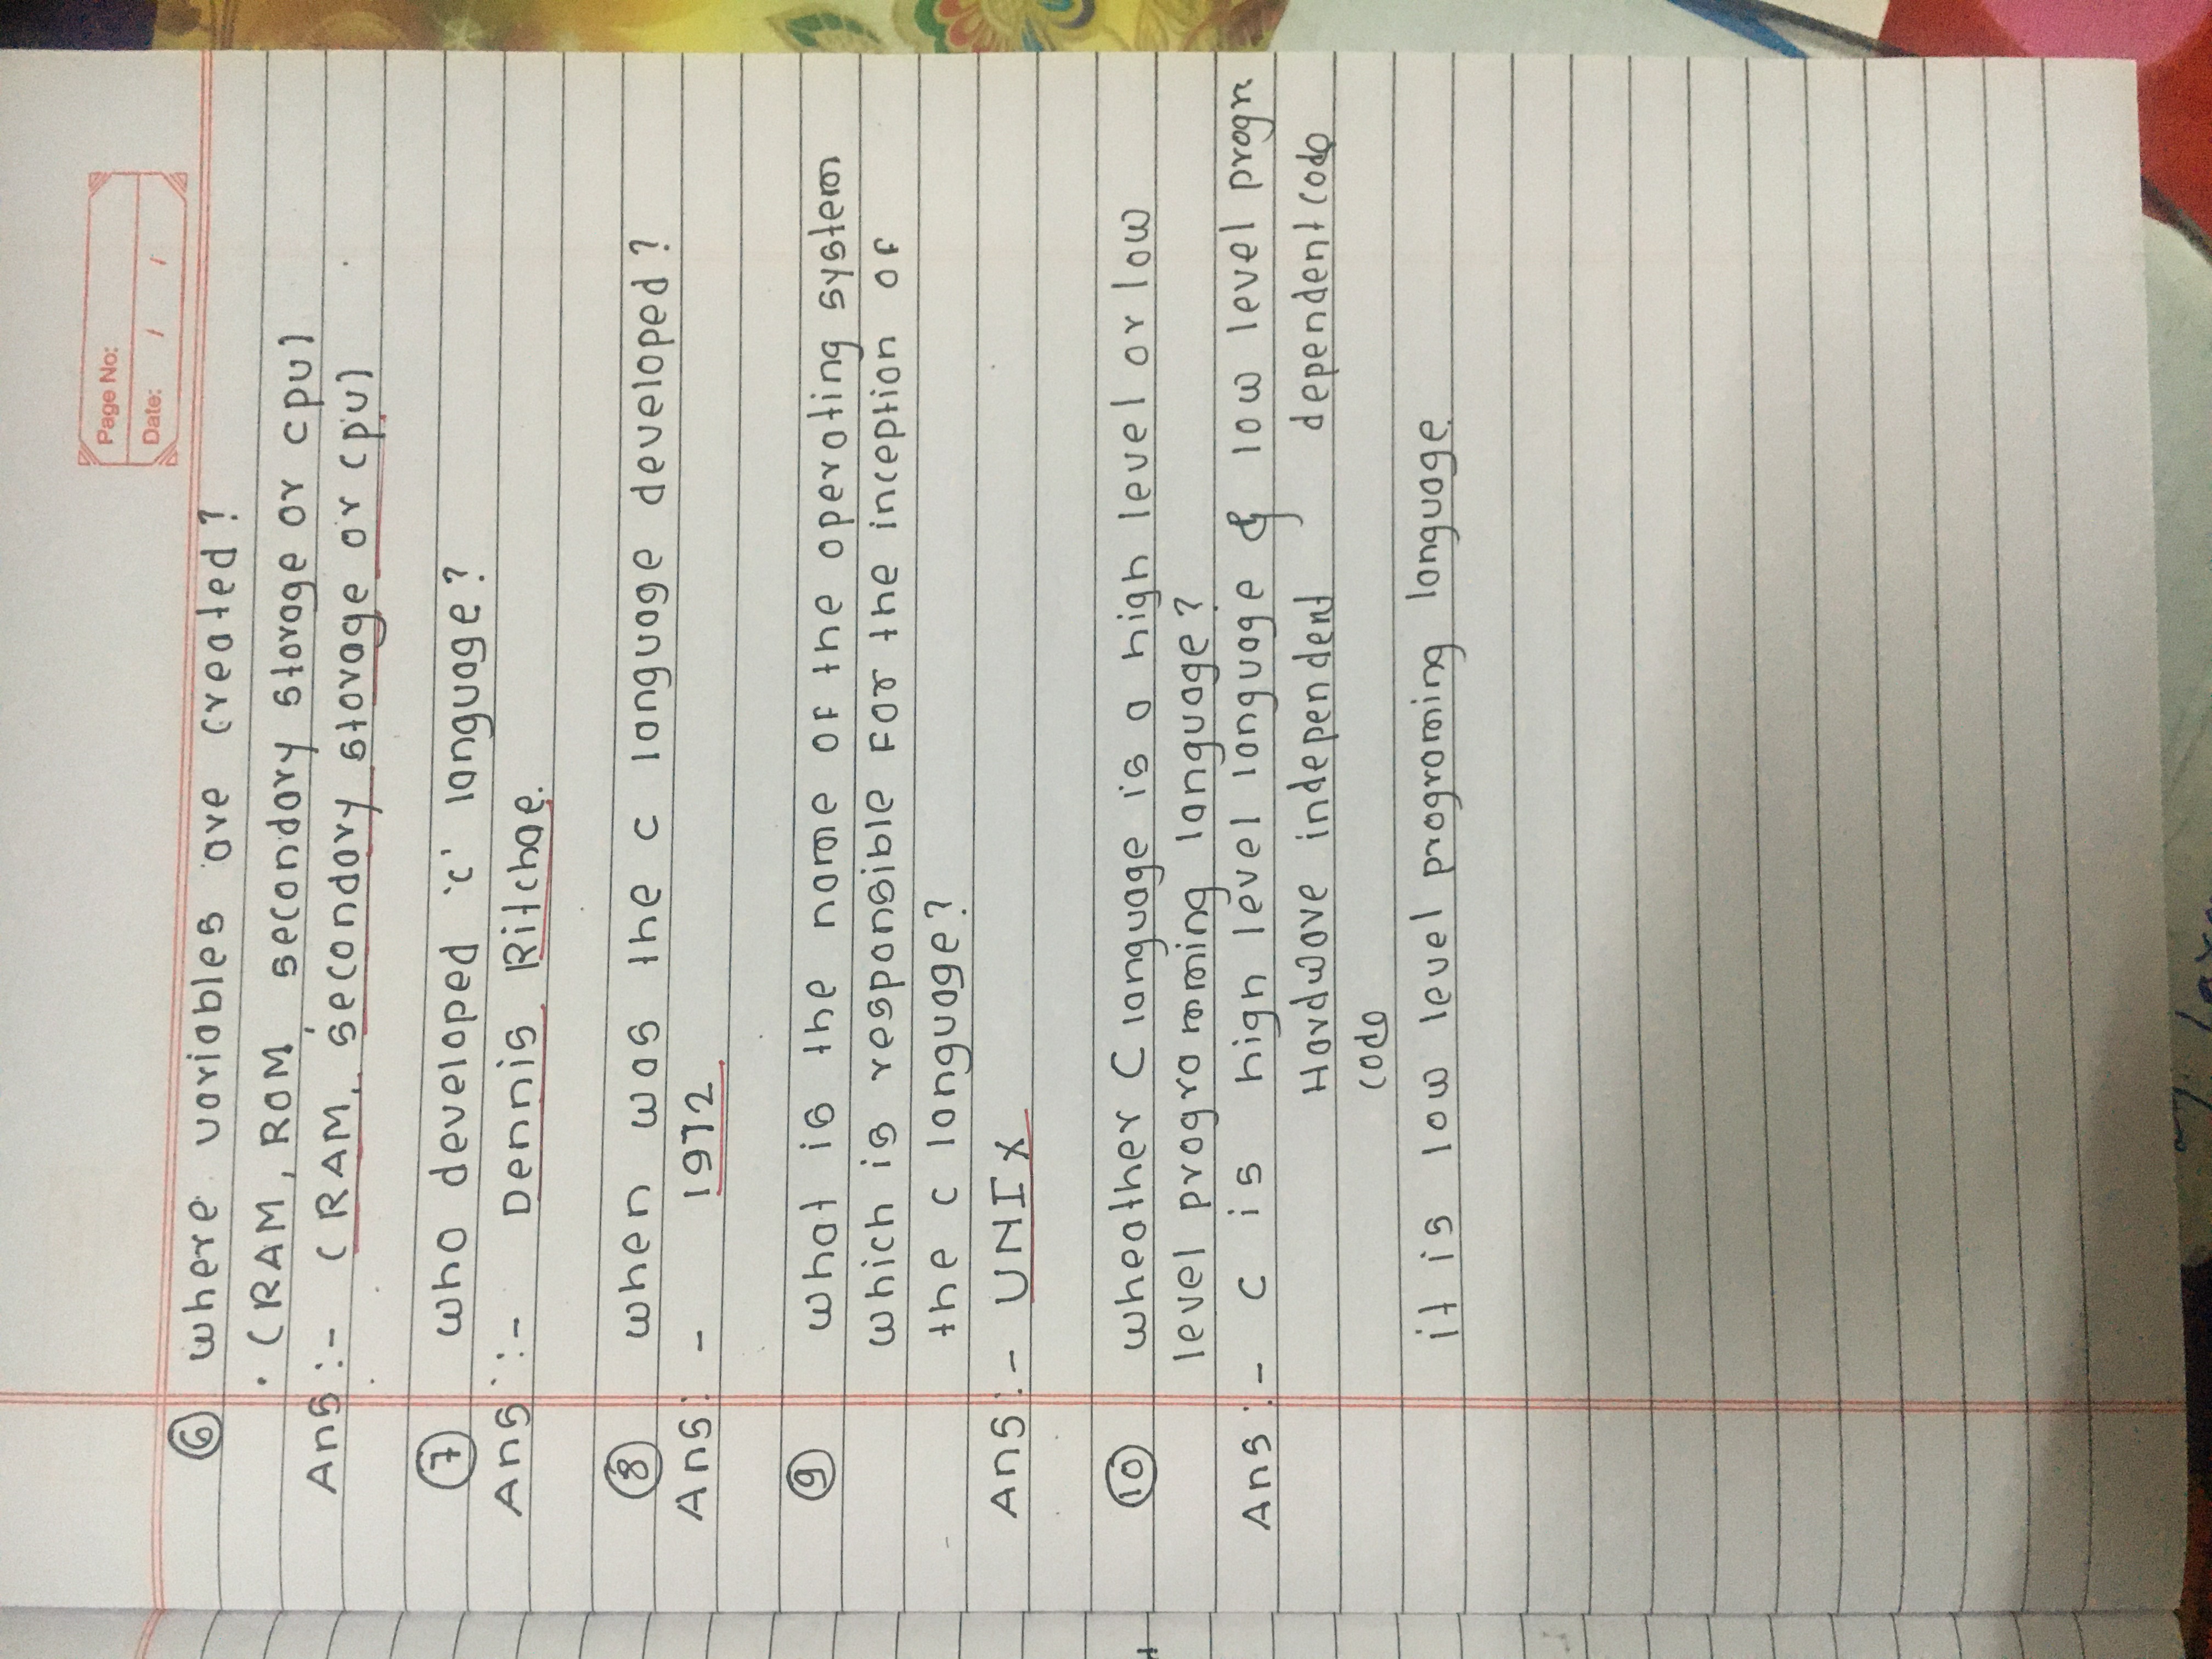 Page No:
Date: / /
⑥ where variables are created?
· (RAM, ROM, secondary storage or cpu)
Ans :- (RAM, secondary storage or cpu)
⑦ who developed 'c' language?
Ans :- Dennis Ritchae.
⑧ when was the c language developed?
Ans : - 1972
⑨ what is the name of the operating system
which is responsible for the inception of
the c language?
Ans :- UNIX
⑩ wheather C language is a high level or low
level programming language?
Ans :- c is high level language & low level progr
Hardware independent dependent code
code
it is low level programing language